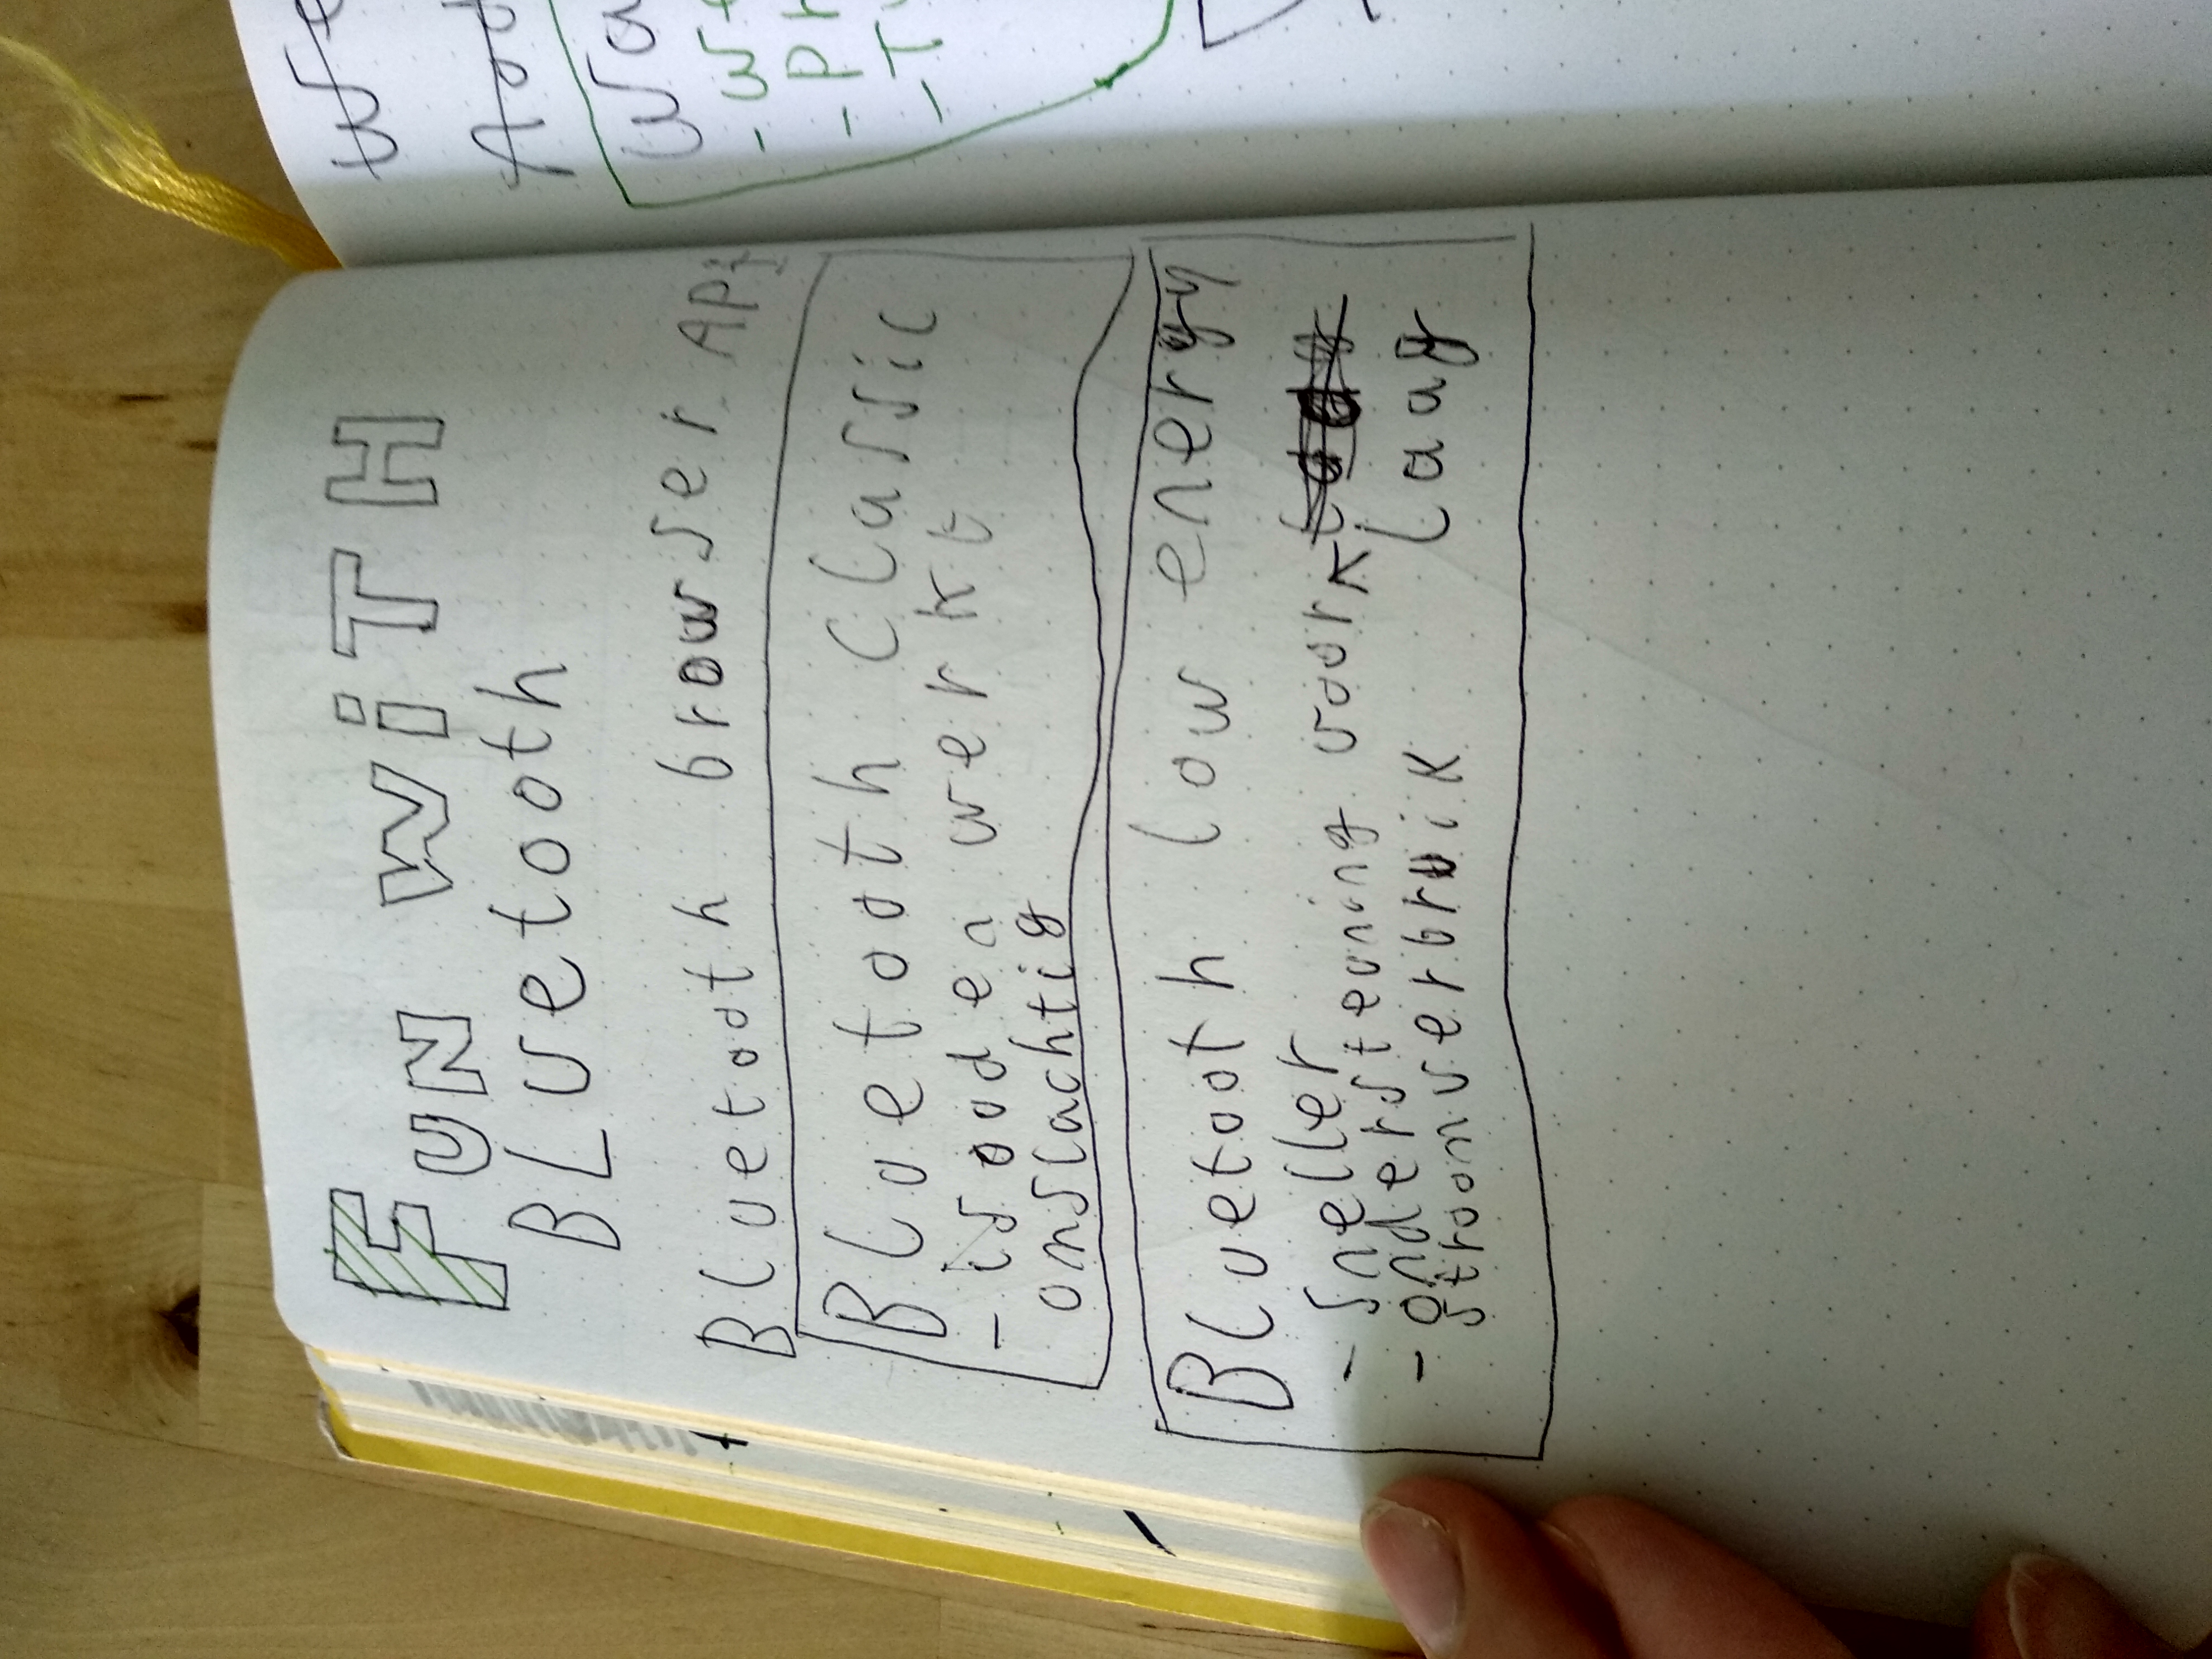 FUN WiTH
BLuetooth
Bluetooth browser API
Bluetooth Classic
- is oud en werkt
omslachtig
Bluetooth low energy
- Sneller
- ondersteuning voor
laag
stroomverbruik
We
Wa
- We
- Pr